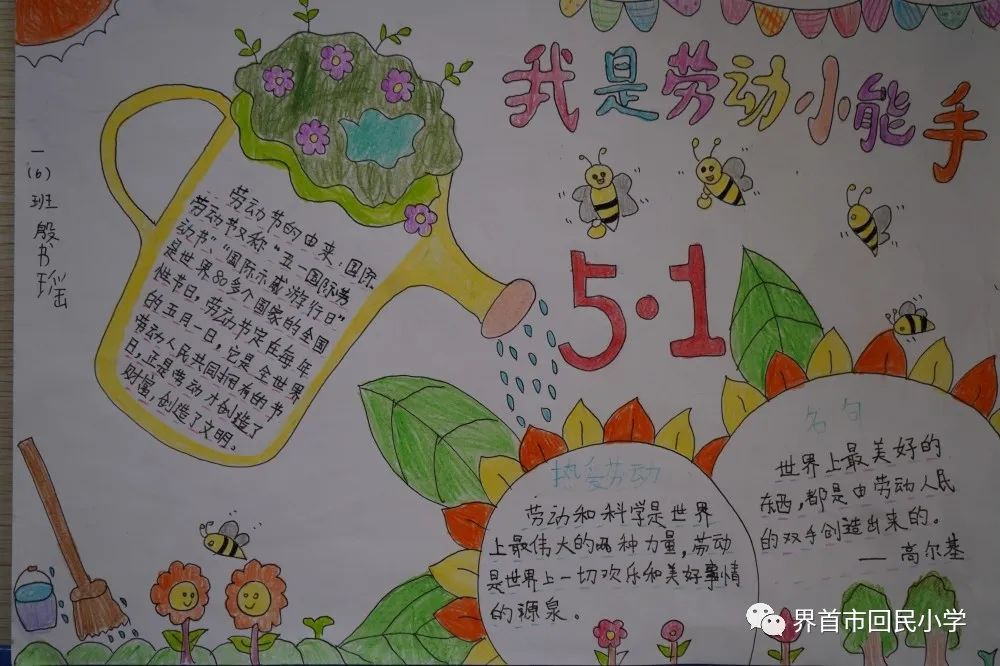 我是劳动小能手
5·1
一(6)班 殷书瑶
劳动节的由来:国际
劳动节又称“五一国际劳
动节”、“国际示威游行日”
是世界80多个国家的全国
性节日,劳动节定在每年
的五月一日,它是全世界
劳动人民共同拥有的节
日,正是劳动才创造了
财富,创造了文明。
热爱劳动
劳动和科学是世界
上最伟大的两种力量,劳动
是世界上一切欢乐和美好事情
的源泉。
名句
世界上最美好的
东西,都是由劳动人民
的双手创造出来的。
——高尔基
界首市回民小学